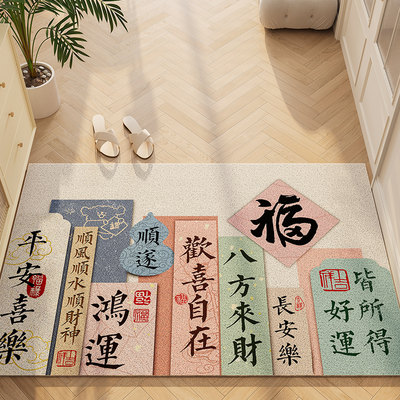 平安喜樂
順風順水順財神
鴻運
順遂
歡喜自在
八方來財
福
長安樂
皆所得
好運